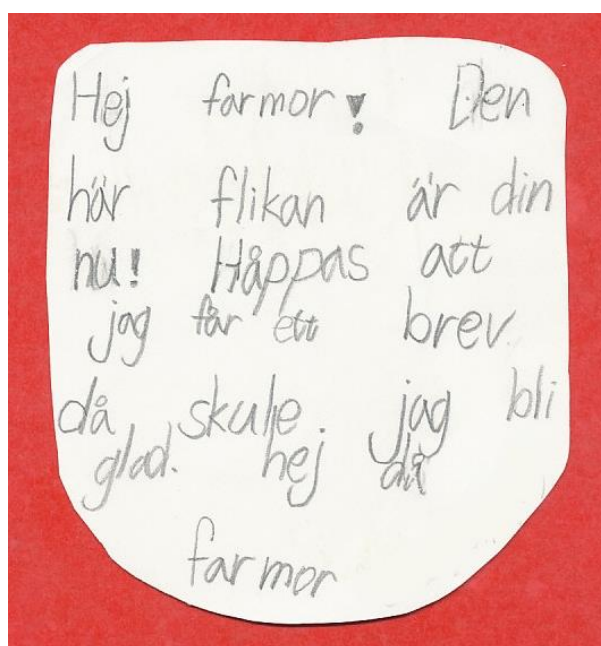 Hej farmor! Den
här flikan är din
nu! Håppas att
jag får ett brev.
då skule jag bli
glad. hej då
farmor